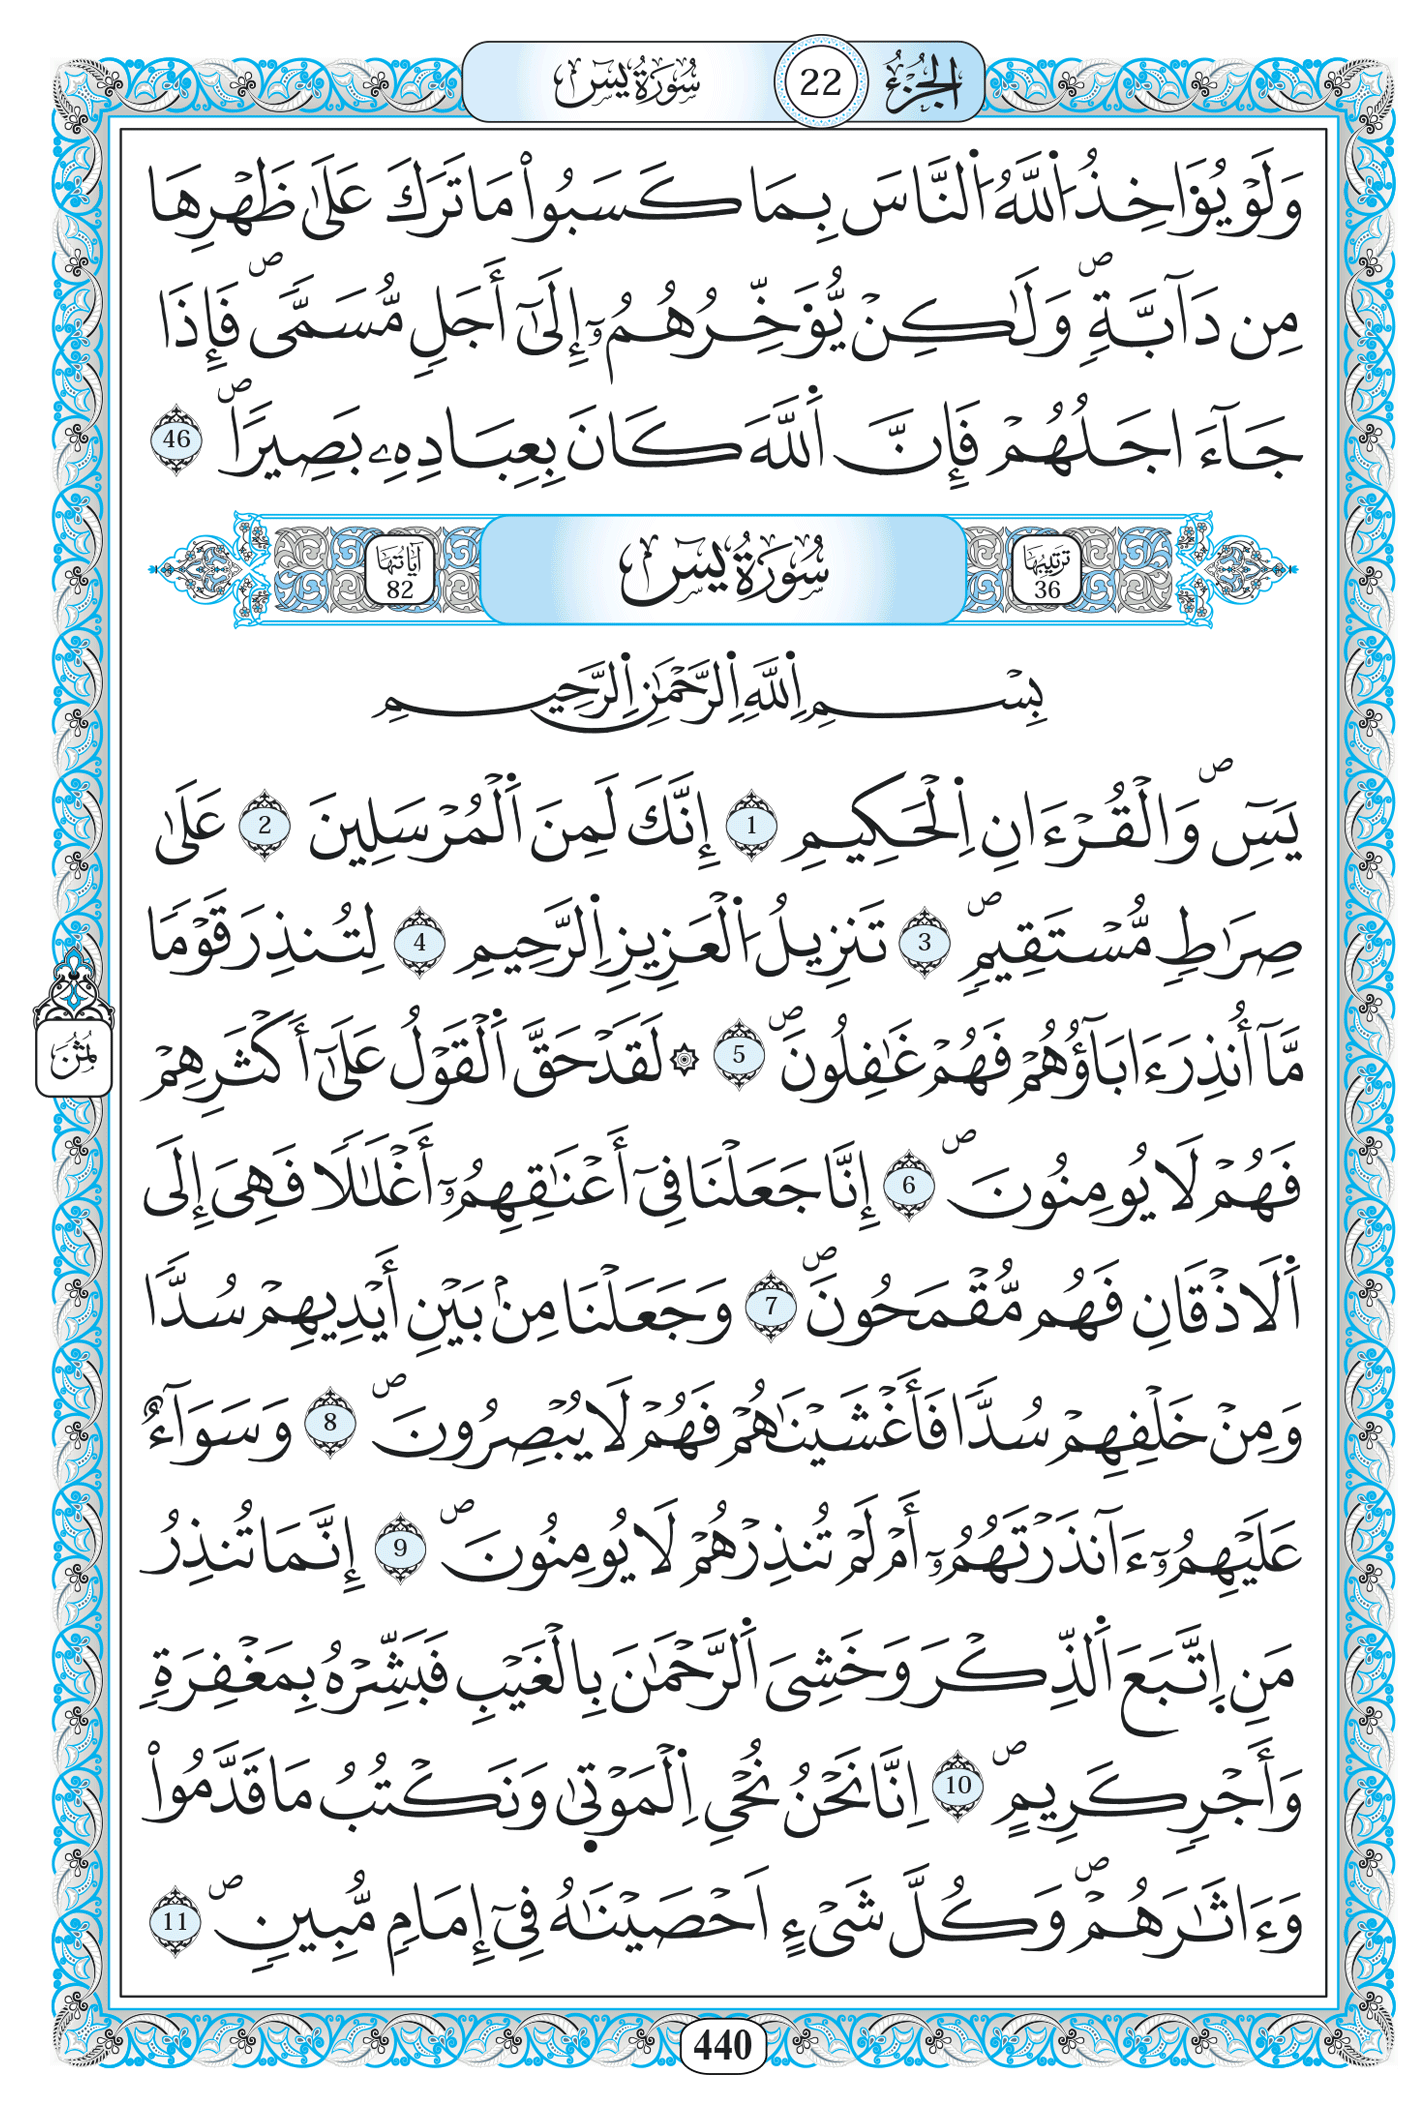 الجُزْءُ 22 سُورَةُ يسٓ
وَلَوْ يُوَ۬اخِذُ اُ۬للَّهُ اُ۬لنَّاسَ بِمَا كَسَبُواْ مَا تَرَكَ عَلَىٰ ظَهْرِهَا
مِن دَآبَّةٖۖ وَلَٰكِنْ يُّوَ۬خِّرُهُمُۥٓ إِلَىٰٓ أَجَلٖ مُّسَمّىٗۖ فَإِذَا
جَآءَ اجَلُهُمْ فَإِنَّ اَ۬للَّهَ كَانَ بِعِبَادِهِۦ بَصِيراٗۖ 46
تَرْتِيبُهَا 36 سُورَةُ يسٓ آيَاتُهَا 82
بِسْمِ اِ۬للَّهِ اِ۬لرَّحْمَٰنِ اِ۬لرَّحِيمِ
يَسِٓۖ وَالْقُرْءَانِ اِ۬لْحَكِيمِ 1 إِنَّكَ لَمِنَ اَ۬لْمُرْسَلِينَ 2 عَلَىٰ
صِرَٰطٖ مُّسْتَقِيمٖۖ 3 تَنزِيلُ اُ۬لْعَزِيزِ اِ۬لرَّحِيمِ 4 لِتُنذِرَ قَوْماٗ
مَّآ أُنذِرَ ءَابَآؤُهُمْ فَهُمْ غَٰفِلُونَۖ 5 ۞ لَقَدْ حَقَّ اَ۬لْقَوْلُ عَلَىٰٓ أَكْثَرِهِمْ
ثُمُن
فَهُمْ لَا يُومِنُونَۖ 6 إِنَّا جَعَلْنَا فِےٓ أَعْنَٰقِهِمُۥٓ أَغْلَٰلاٗ فَهِىَ إِلَى
اَ۬لَاذْقَانِ فَهُم مُّقْمَحُونَۖ 7 وَجَعَلْنَا مِنۢ بَيْنِ أَيْدِيهِمْ سُدّاٗ
وَمِنْ خَلْفِهِمْ سُدّاٗ فَأَغْشَيْنَٰهُمْ فَهُمْ لَا يُبْصِرُونَۖ 8 وَسَوَآءٌ
عَلَيْهِمُۥٓ ءَآنذَرْتَهُمُۥٓ أَمْ لَمْ تُنذِرْهُمْ لَا يُومِنُونَۖ 9 إِنَّمَا تُنذِرُ
مَنِ اِ۪تَّبَعَ اَ۬لذِّكْرَ وَخَشِىَ اَ۬لرَّحْمَٰنَ بِالْغَيْبِ فَبَشِّرْهُ بِمَغْفِرَةٖ
وَأَجْرٖ كَرِيمٍۖ 10 اِنَّا نَحْنُ نُحْىِ اِ۬لْمَوْتۭىٰ وَنَكْتُبُ مَا قَدَّمُواْ
وَءَاثَٰرَهُمْۖ وَكُلَّ شَےْءٍ اَحْصَيْنَٰهُ فِےٓ إِمَامٖ مُّبِينٖۖ 11
440